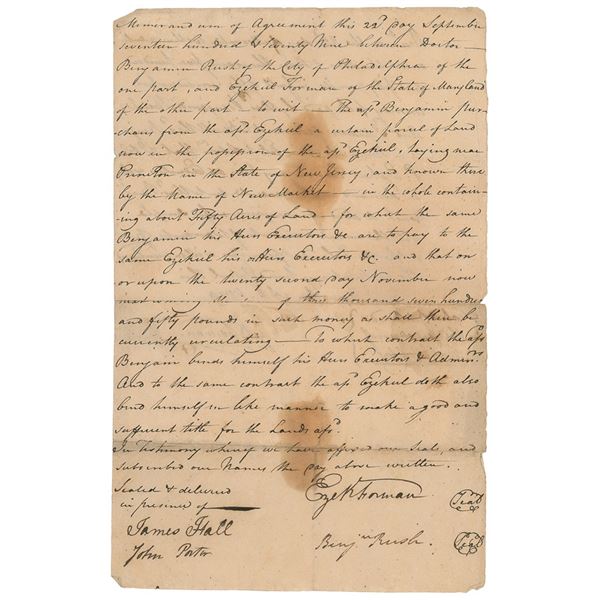 Memorandum of Agreement this 22d Day September
seventeen hundred & twenty Nine between Doctor
Benjamin Rush of the City of Philadelphia of the
one part, and Ezekiel Forman of the State of Maryland
of the other part — to wit — The afsd Benjamin pur-
chases from the afsd Ezekiel a certain parcel of Land
now in the possession of the afsd Ezekiel, laying near
Princeton in the State of New Jersey, and known there
by the Name of New Market — in the whole contain-
ing about Fifty Acres of Land — for which the same
Benjamin his Heirs Executors &c are to pay to the
same Ezekiel his Heirs Executors &c. and that on
or upon the twenty second day November now
next coming the sum of three thousand seven hundred
and fifty pounds in such money as shall then be
currently circulating — To which contract the afsd
Benjain binds himself his Heirs Executors & Adminrs
And to the same contract the afsd Ezekiel doth also
bind himself in like manner to make a good and
sufficient title for the Lands afsd.
In testimony whereof we have affixed our Seals, and
Subscribed our Names the Day above written.
Sealed & delivered
in presence of
Ezekl Forman Seal
James Hall
John Porter
Benjn Rush. Seal